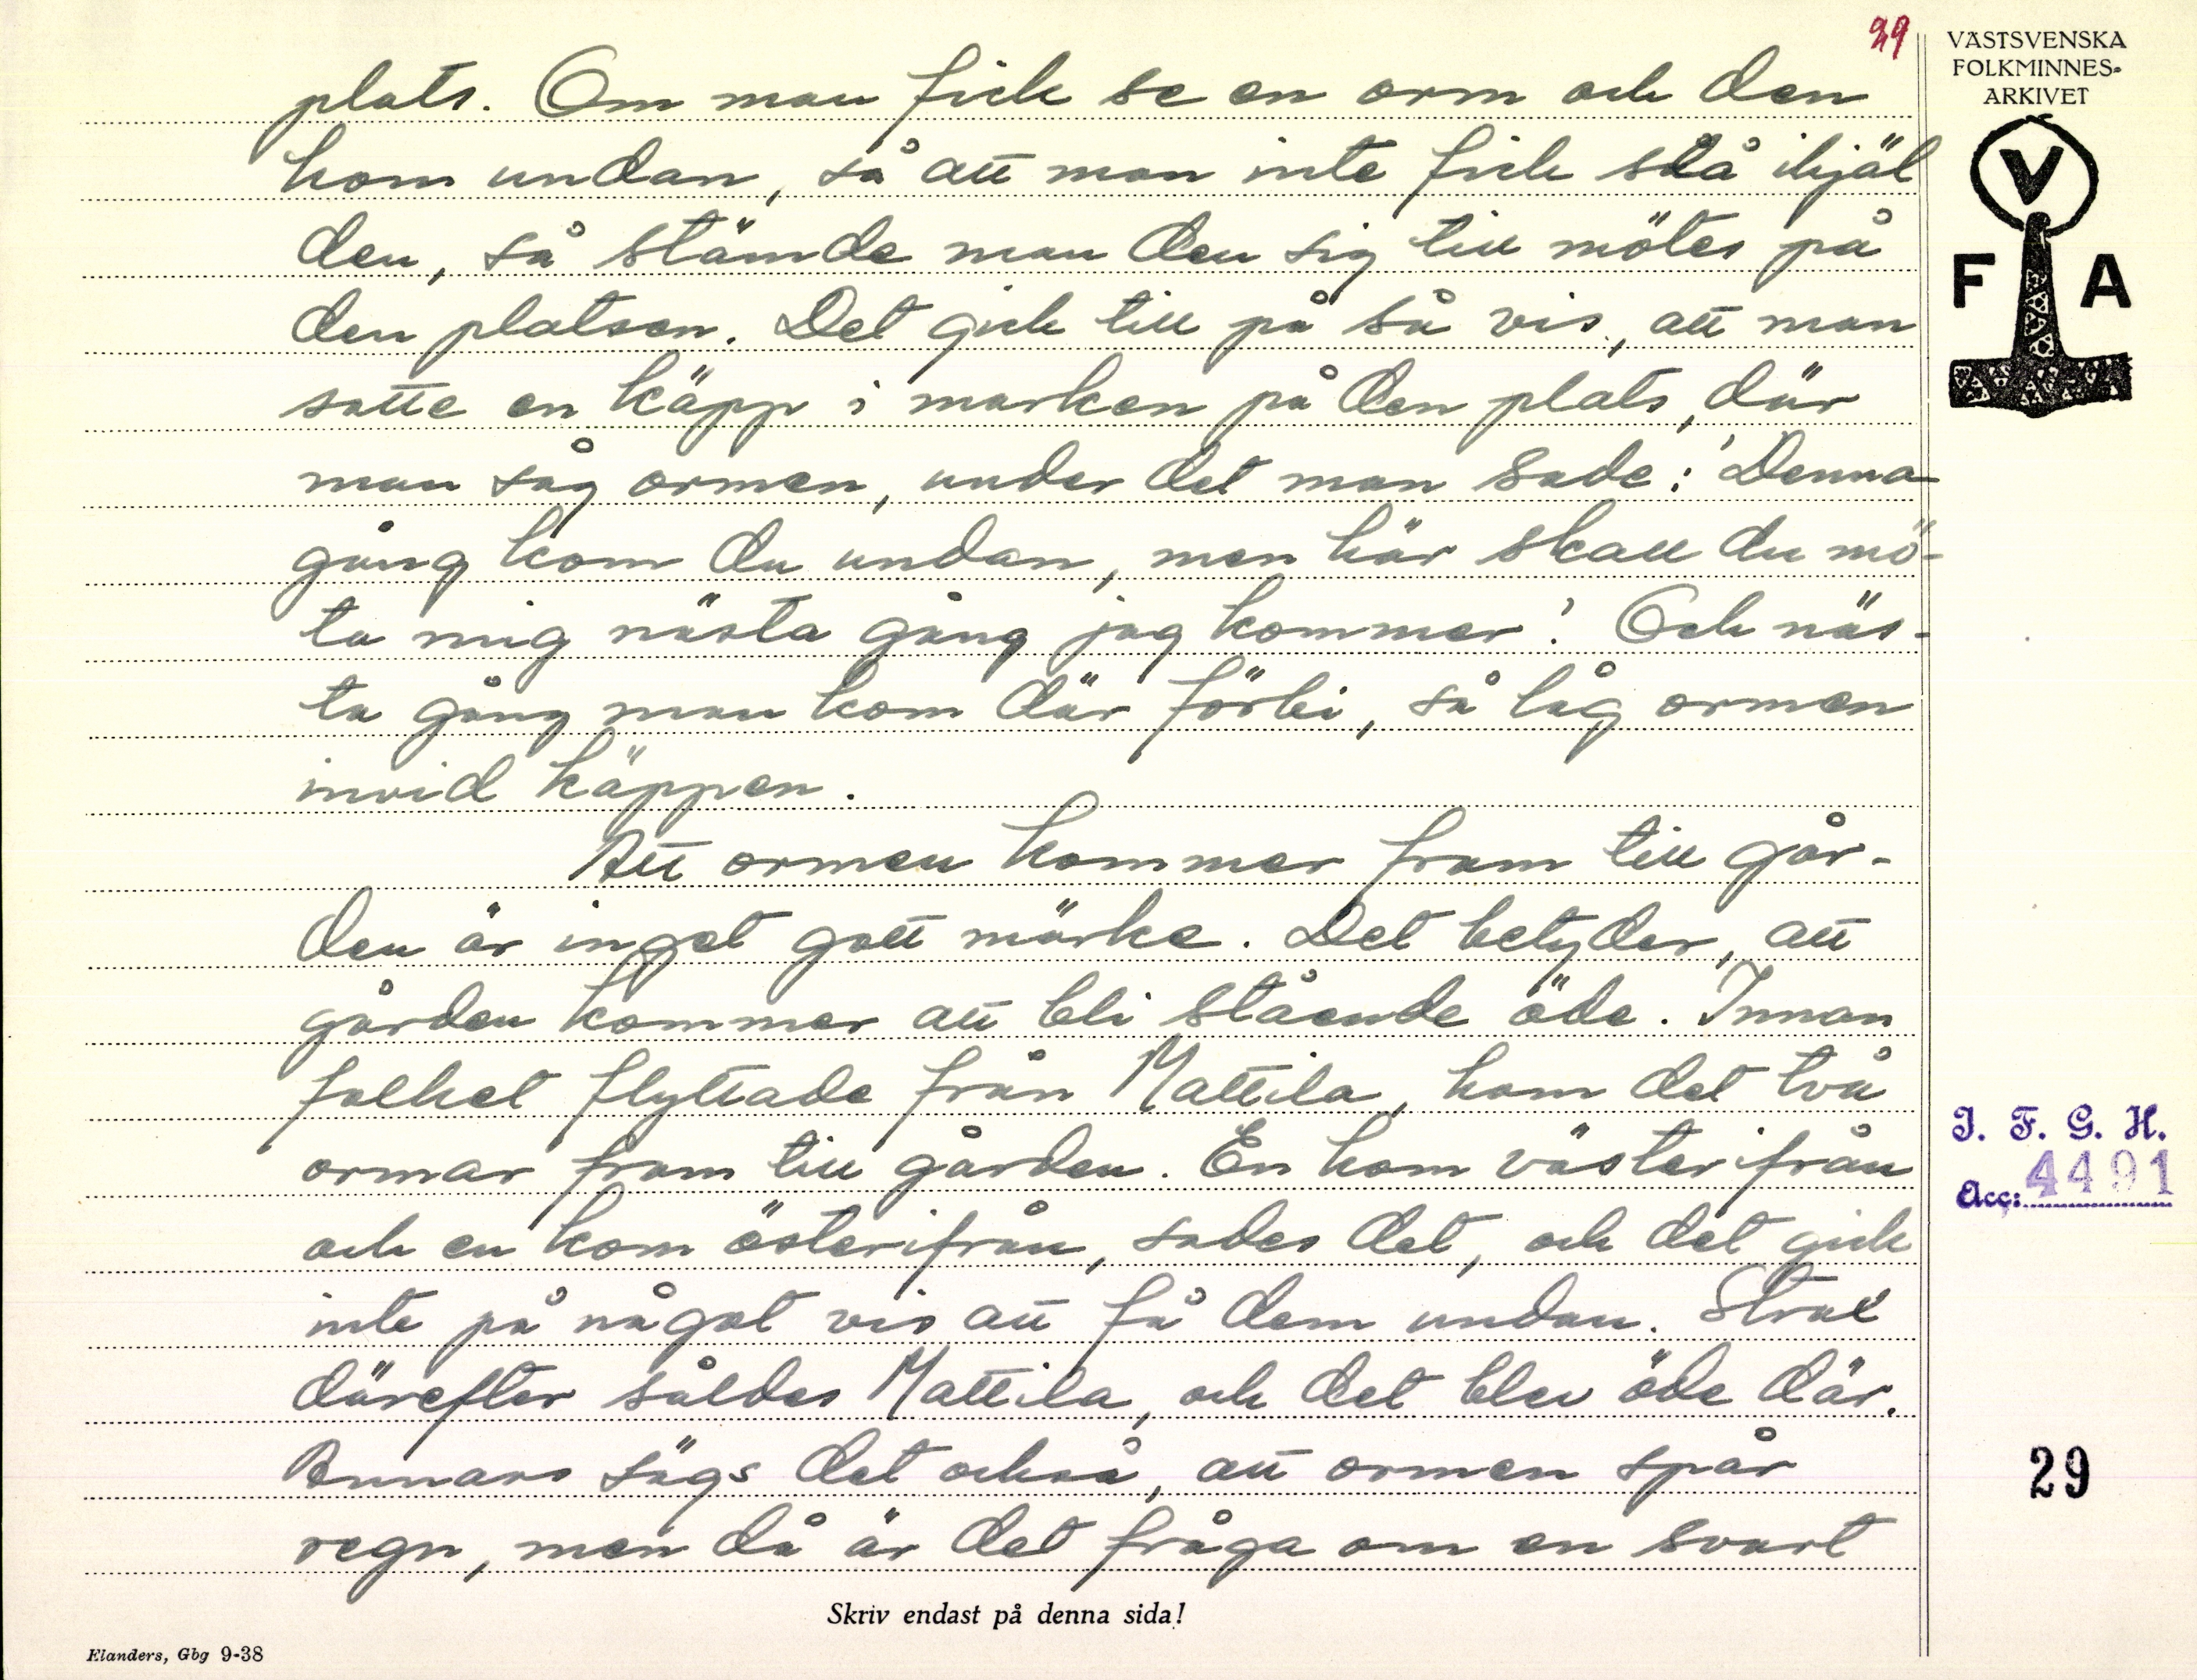 29
VÄSTSVENSKA
FOLKMINNES-
ARKIVET
V
F A
plats. Om man fick se en orm och den
kom undan, så att man inte fick slå ihjäl
den, så stämde man den sig till mötes på
den platsen. Det gick till på så vis, att man
satte en käpp i marken på den plats, där
man såg ormen, under det man sade: 'Denna
gång kom du undan, men här skall du mö-
ta mig nästa gång jag kommer!' Och näs-
ta gång man kom där förbi, så låg ormen
invid käppen.
Att ormen kommer fram till går-
den är inget gott märke. Det betyder, att
gården kommer att bli stående öde. Innan
folket flyttade från Mattila, kom det två
ormar fram till gården. En kom västerifrån
och en kom österifrån, sades det, och det gick
inte på något vis att få dem undan. Strax
därefter såldes Mattila, och det blev öde där.
Annars sägs det också, att ormen spår
regn, men då är det fråga om en svart
I. F. G. H.
Acc: 4491
29
Skriv endast på denna sida!
Elanders, Gbg 9-38